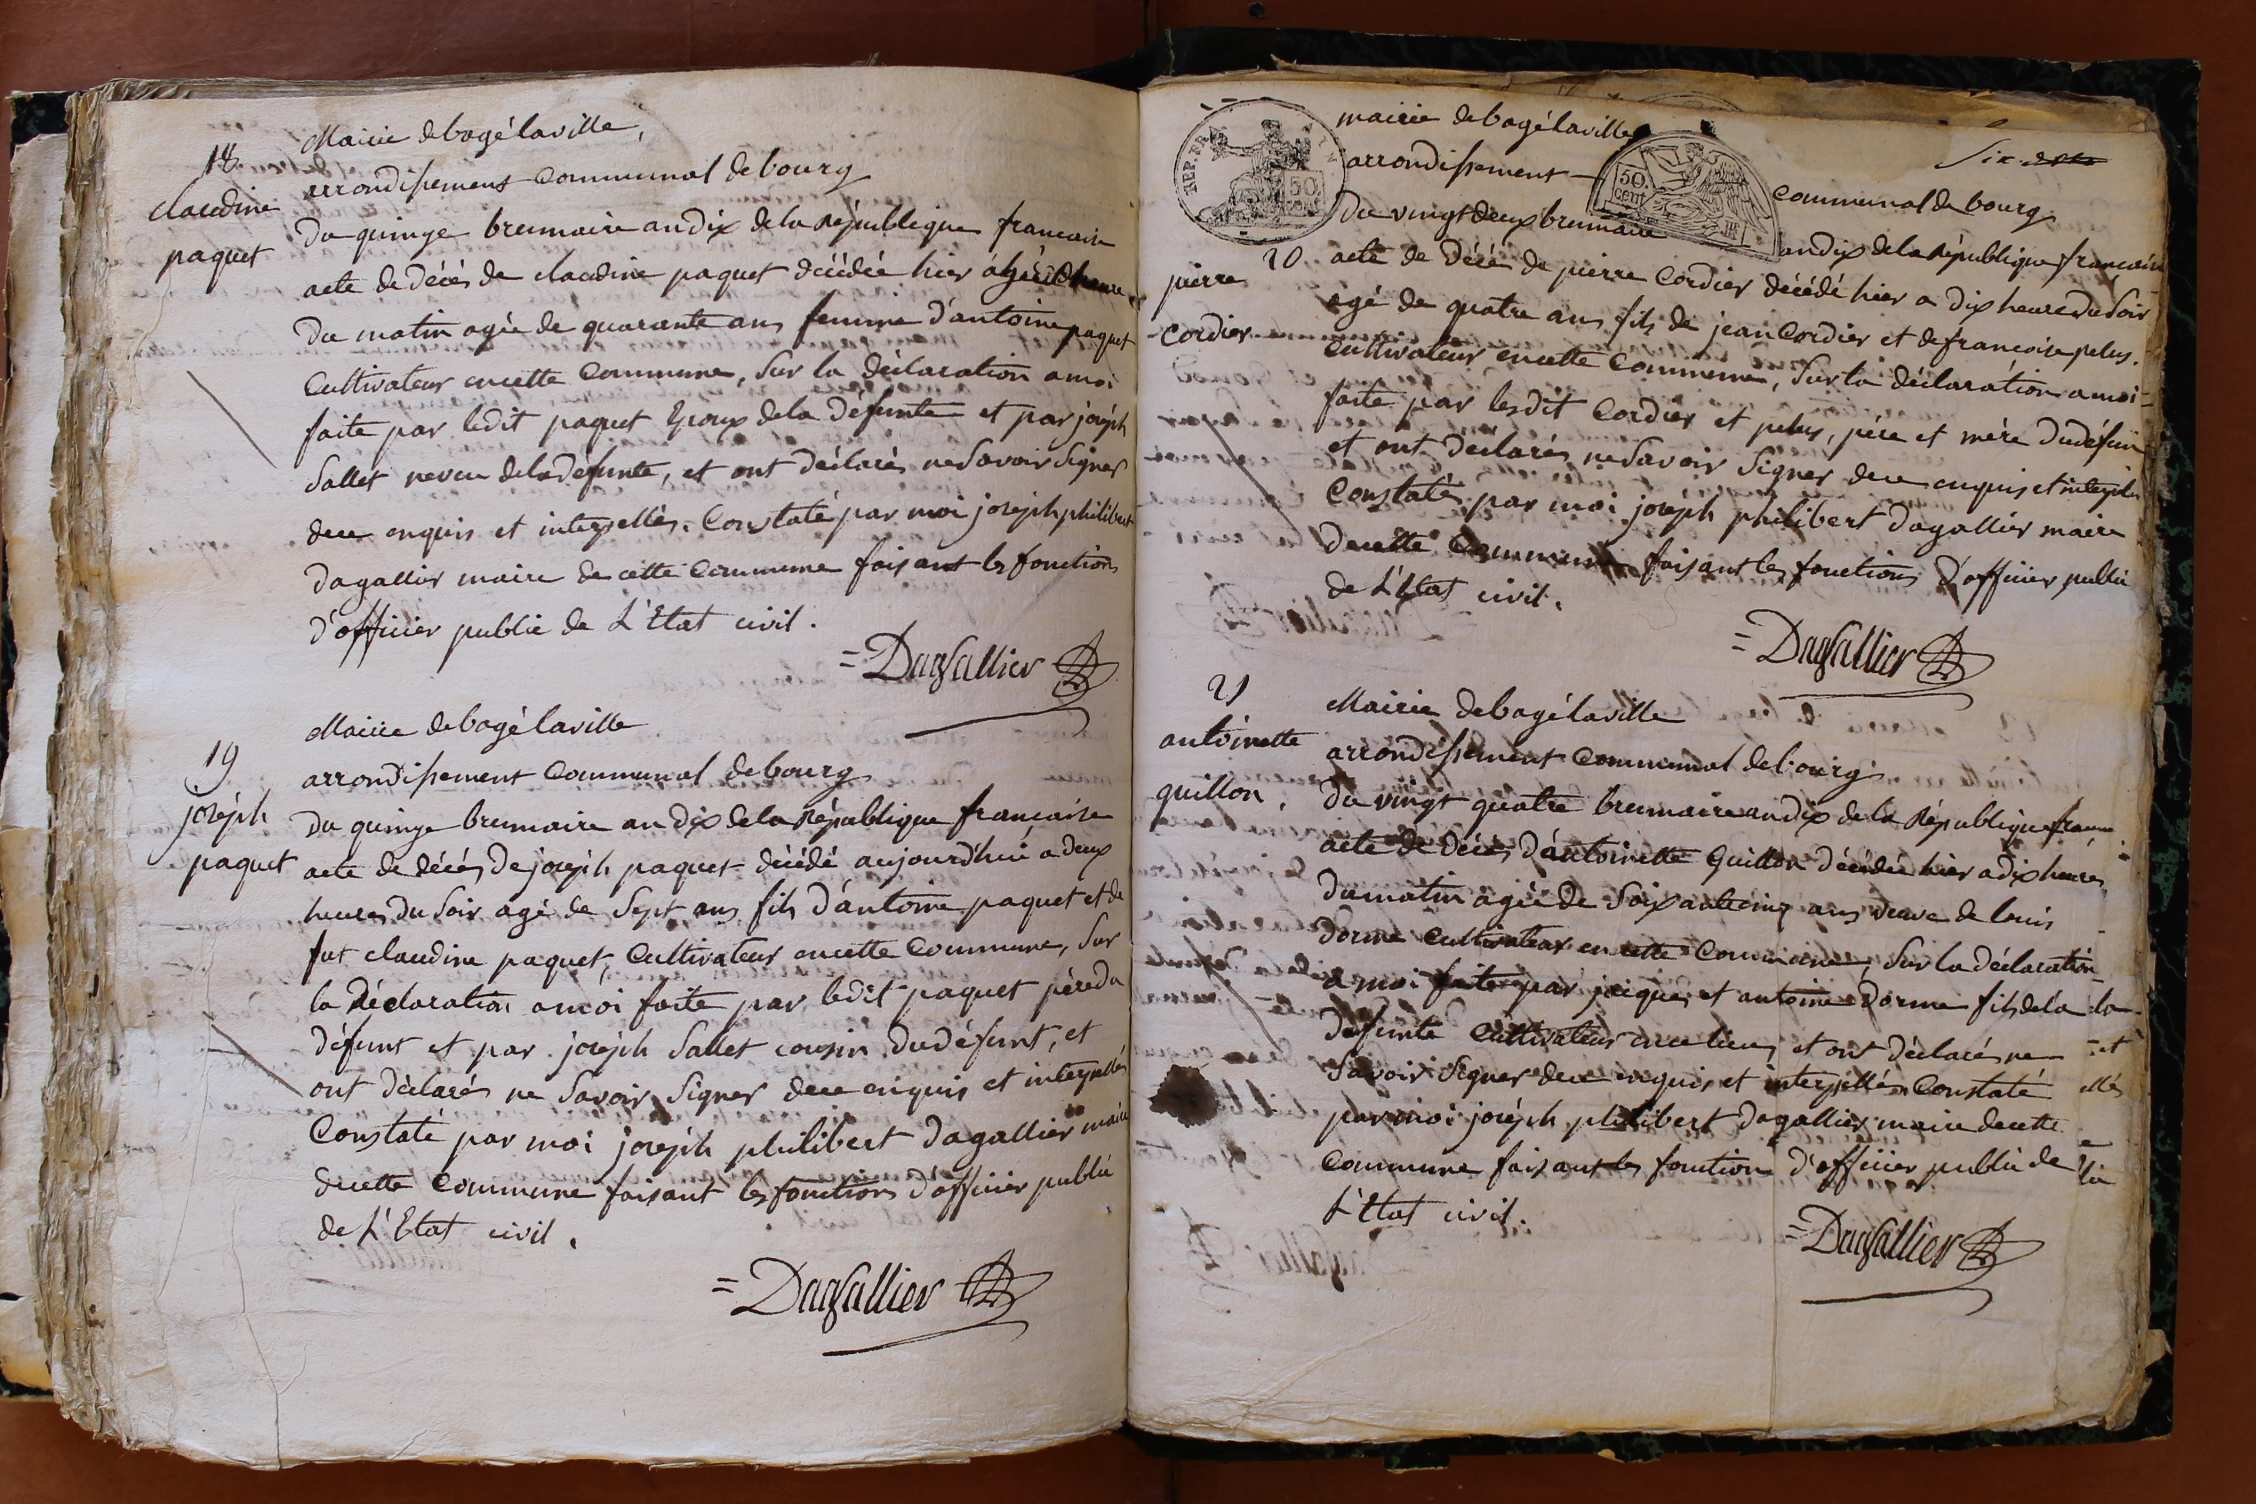 18
claudine
paquet
Mairie de bagé laville,
arrondissement Communal de bourg
Du quinze brumaire an dix de la République francaise
acte de décès de claudine paquet décédée hier à
du matin agée de quarante ans femme d'antoine paquet
Cultivateur en cette Commune, Sur la déclaration a moi
faite par ledit paquet Epoux de la défunte et par joséph
Sallet neveu de la défunte, et ont déclarés ne Savoir Signer
de ce enquis et interpellés. Constaté par moi joséph philibert
Dagallier maire de cette Commune faisant les fonctions
d'officier public de L'Etat civil.
= Dagallier
19
joséph
paquet
Mairie de bagé laville
arrondissement Communal de bourg
Du quinze brumaire an dix de la République francaise
acte de décès de joséph paquet décédé aujourd'hui a deux
heures du Soir agé de Sept ans fils d'antoine paquet et de
fut claudine paquet, Cultivateur en cette Commune, Sur
la Déclaration a moi faite par ledit paquet père du
défunt et par joséph Sallet cousin du défunt, et
ont déclarés ne Savoir Signer de ce enquis et interpellés
Constaté par moi joséph philibert Dagallier maire
de cette Commune faisant les fonctions d'officier public
de L'Etat civil.
= Dagallier
Six
REP. FRA
50
50.
cent
20
pierre
Cordier
mairie de bagé laville
arrondissement Communal de bourg
Du vingt deux brumaire an dix de la République francaise
acte de décé de pierre Cordier décédé hier a dix heures du Soir
agé de quatre ans fils de jean Cordier et de francoise pelus.
Cultivateur en cette Commune, Sur la déclaration a moi
faite par lesdit Cordier et pelus, père et mère du défun
et ont déclarés ne Savoir Signer de ce enquis et interpéllés
Constaté par moi joséph philibert Dagallier maire
de cette Commune faisant les fonctions d'officier public
de L'Etat civil.
= Dagallier
21
antoinette
guillon.
Mairie de bagé laville
arrondissement Communal de bourg
Du vingt quatre brumaire an dix de la République
acte de décès d'antoinette Guillon décédée hier a dix heures
du matin agée de Soixante cinq ans veuve de louis
dorme Cultivateur en cette Commune, Sur la déclaration
a moi faite par jacques et antoine dorme fils de la
défunte Cultivateurs en ce lieu, et ont déclarés ne
Savoir Signer de ce enquis et interpellés. Constaté
par moi joséph philibert Dagallier maire de cette
Commune faisant les fonctions d'officier public de
L'Etat civil.
= Dagallier